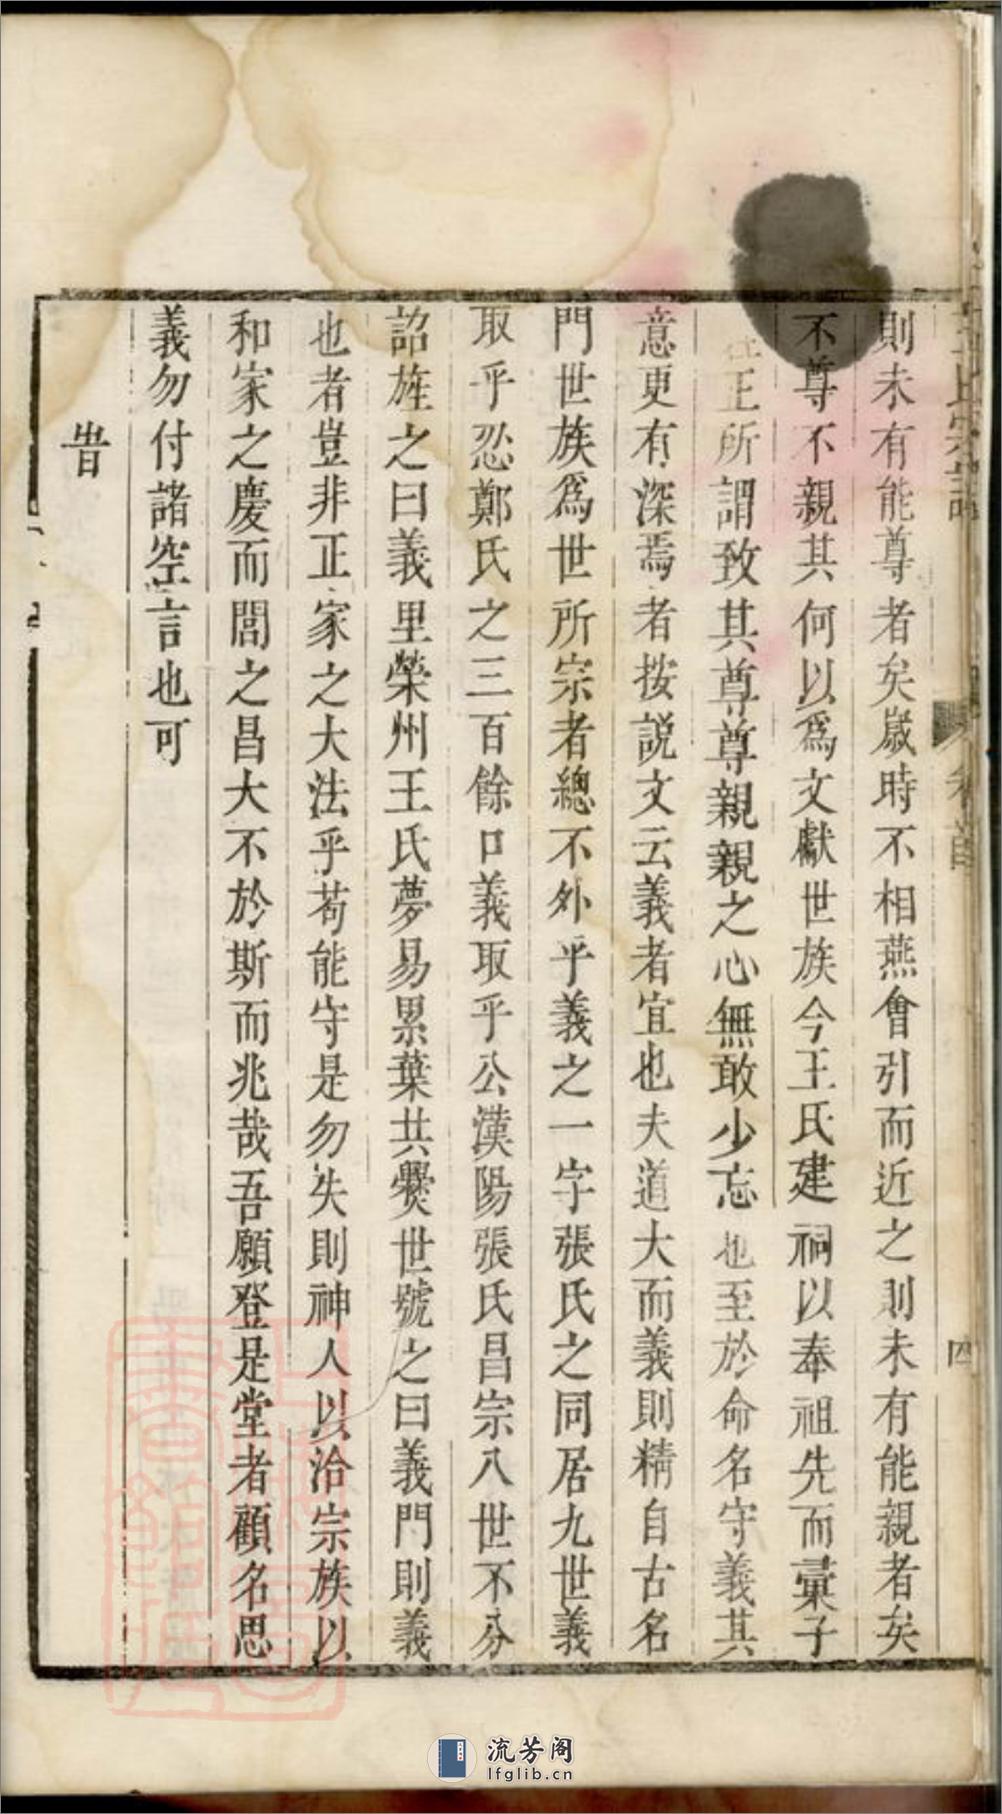 則未有能尊者矣歲時不相燕會引而近之則未有能親者矣
不尊不親其何以爲文獻世族今王氏建祠以奉祖先而彙子
姓正所謂致其尊尊親親之心無敢少忘也至於命名守義其
意更有深焉者按說文云義者宜也夫道大而義則精自古名
門世族爲世所宗者總不外乎義之一字張氏之同居九世義
取乎忍鄭氏之三百餘口義取乎公漢陽張氏昌宗八世不分
詔旌之曰義里榮州王氏夢易累葉共爨世號之曰義門則義
也者豈非正家之大法乎苟能守是勿失則神人以洽宗族以
和家之慶而閭之昌大不於斯而兆哉吾願登是堂者顧名思
義勿付諸空言也可
旹
四
流芳阁
lfglib.cn